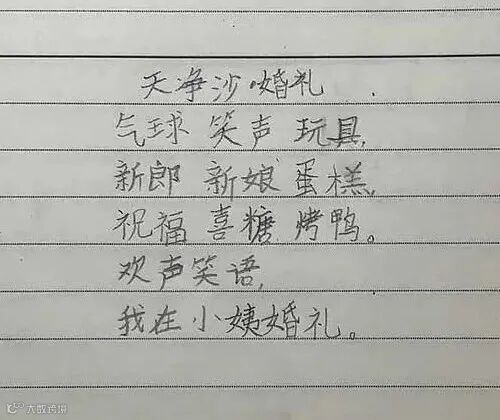 天净沙·婚礼
气球 笑声 玩具,
新郎 新娘 蛋糕,
祝福 喜糖 烤鸭。
欢声笑语,
我在小姨婚礼。
大皖跨球